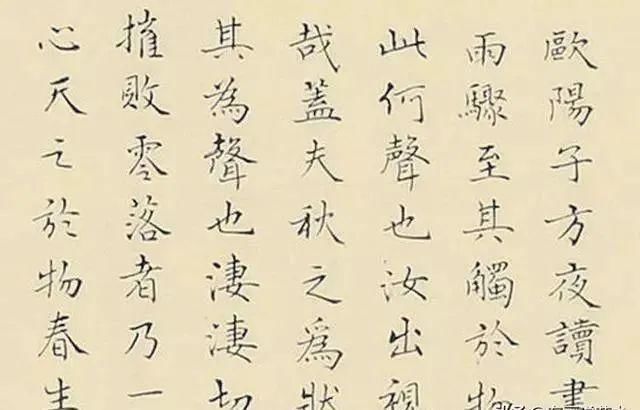 歐陽子方夜讀書
雨驟至其觸於物
此何聲也汝出視
哉蓋夫秋之為狀
其為聲也淒淒切
摧敗零落者乃一
心天之於物春生